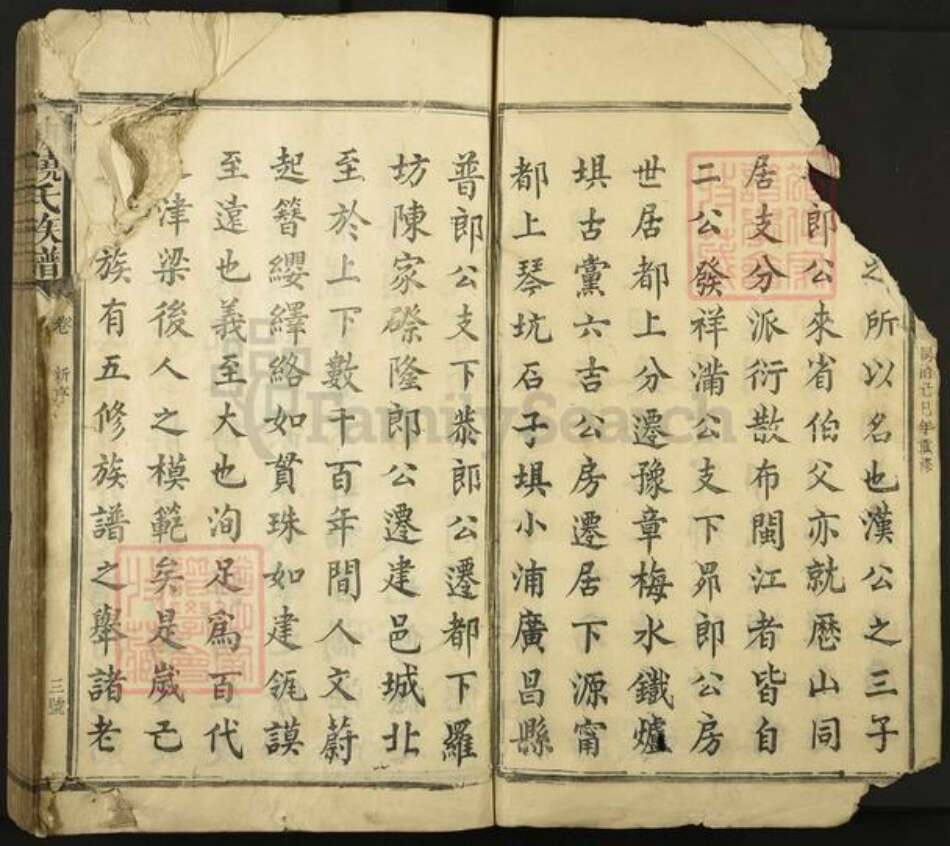 之所以名也漢公之三子
郎公來省伯父亦就居歷山同
居支分派衍散布閩江者皆自
二公發祥滿公支下昴郎公房
世居都上分遷豫章梅水鐵爐
埧古黨六吉公房遷居下源甯
都上琴坑石子埧小浦廣昌縣
普郎公支下恭郎公遷都下羅
坊陳家磜隆郎公遷建邑城北
至於上下數千百年間人文蔚
起簪纓繹絡如貫珠如建瓴謨
至遠也義至大也洵足爲百代
津梁後人之模範矣是歲己
族有五修族譜之舉諸老
饒氏族譜 卷 新序 三號
同治己巳年重修
FamilySearch